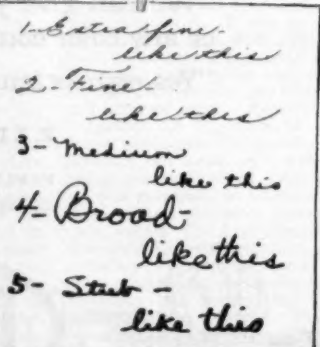 1-Extra fine-
like this
2-Fine-
like this
3-Medium
like this
4-Broad-
like this
5-Stub-
like this